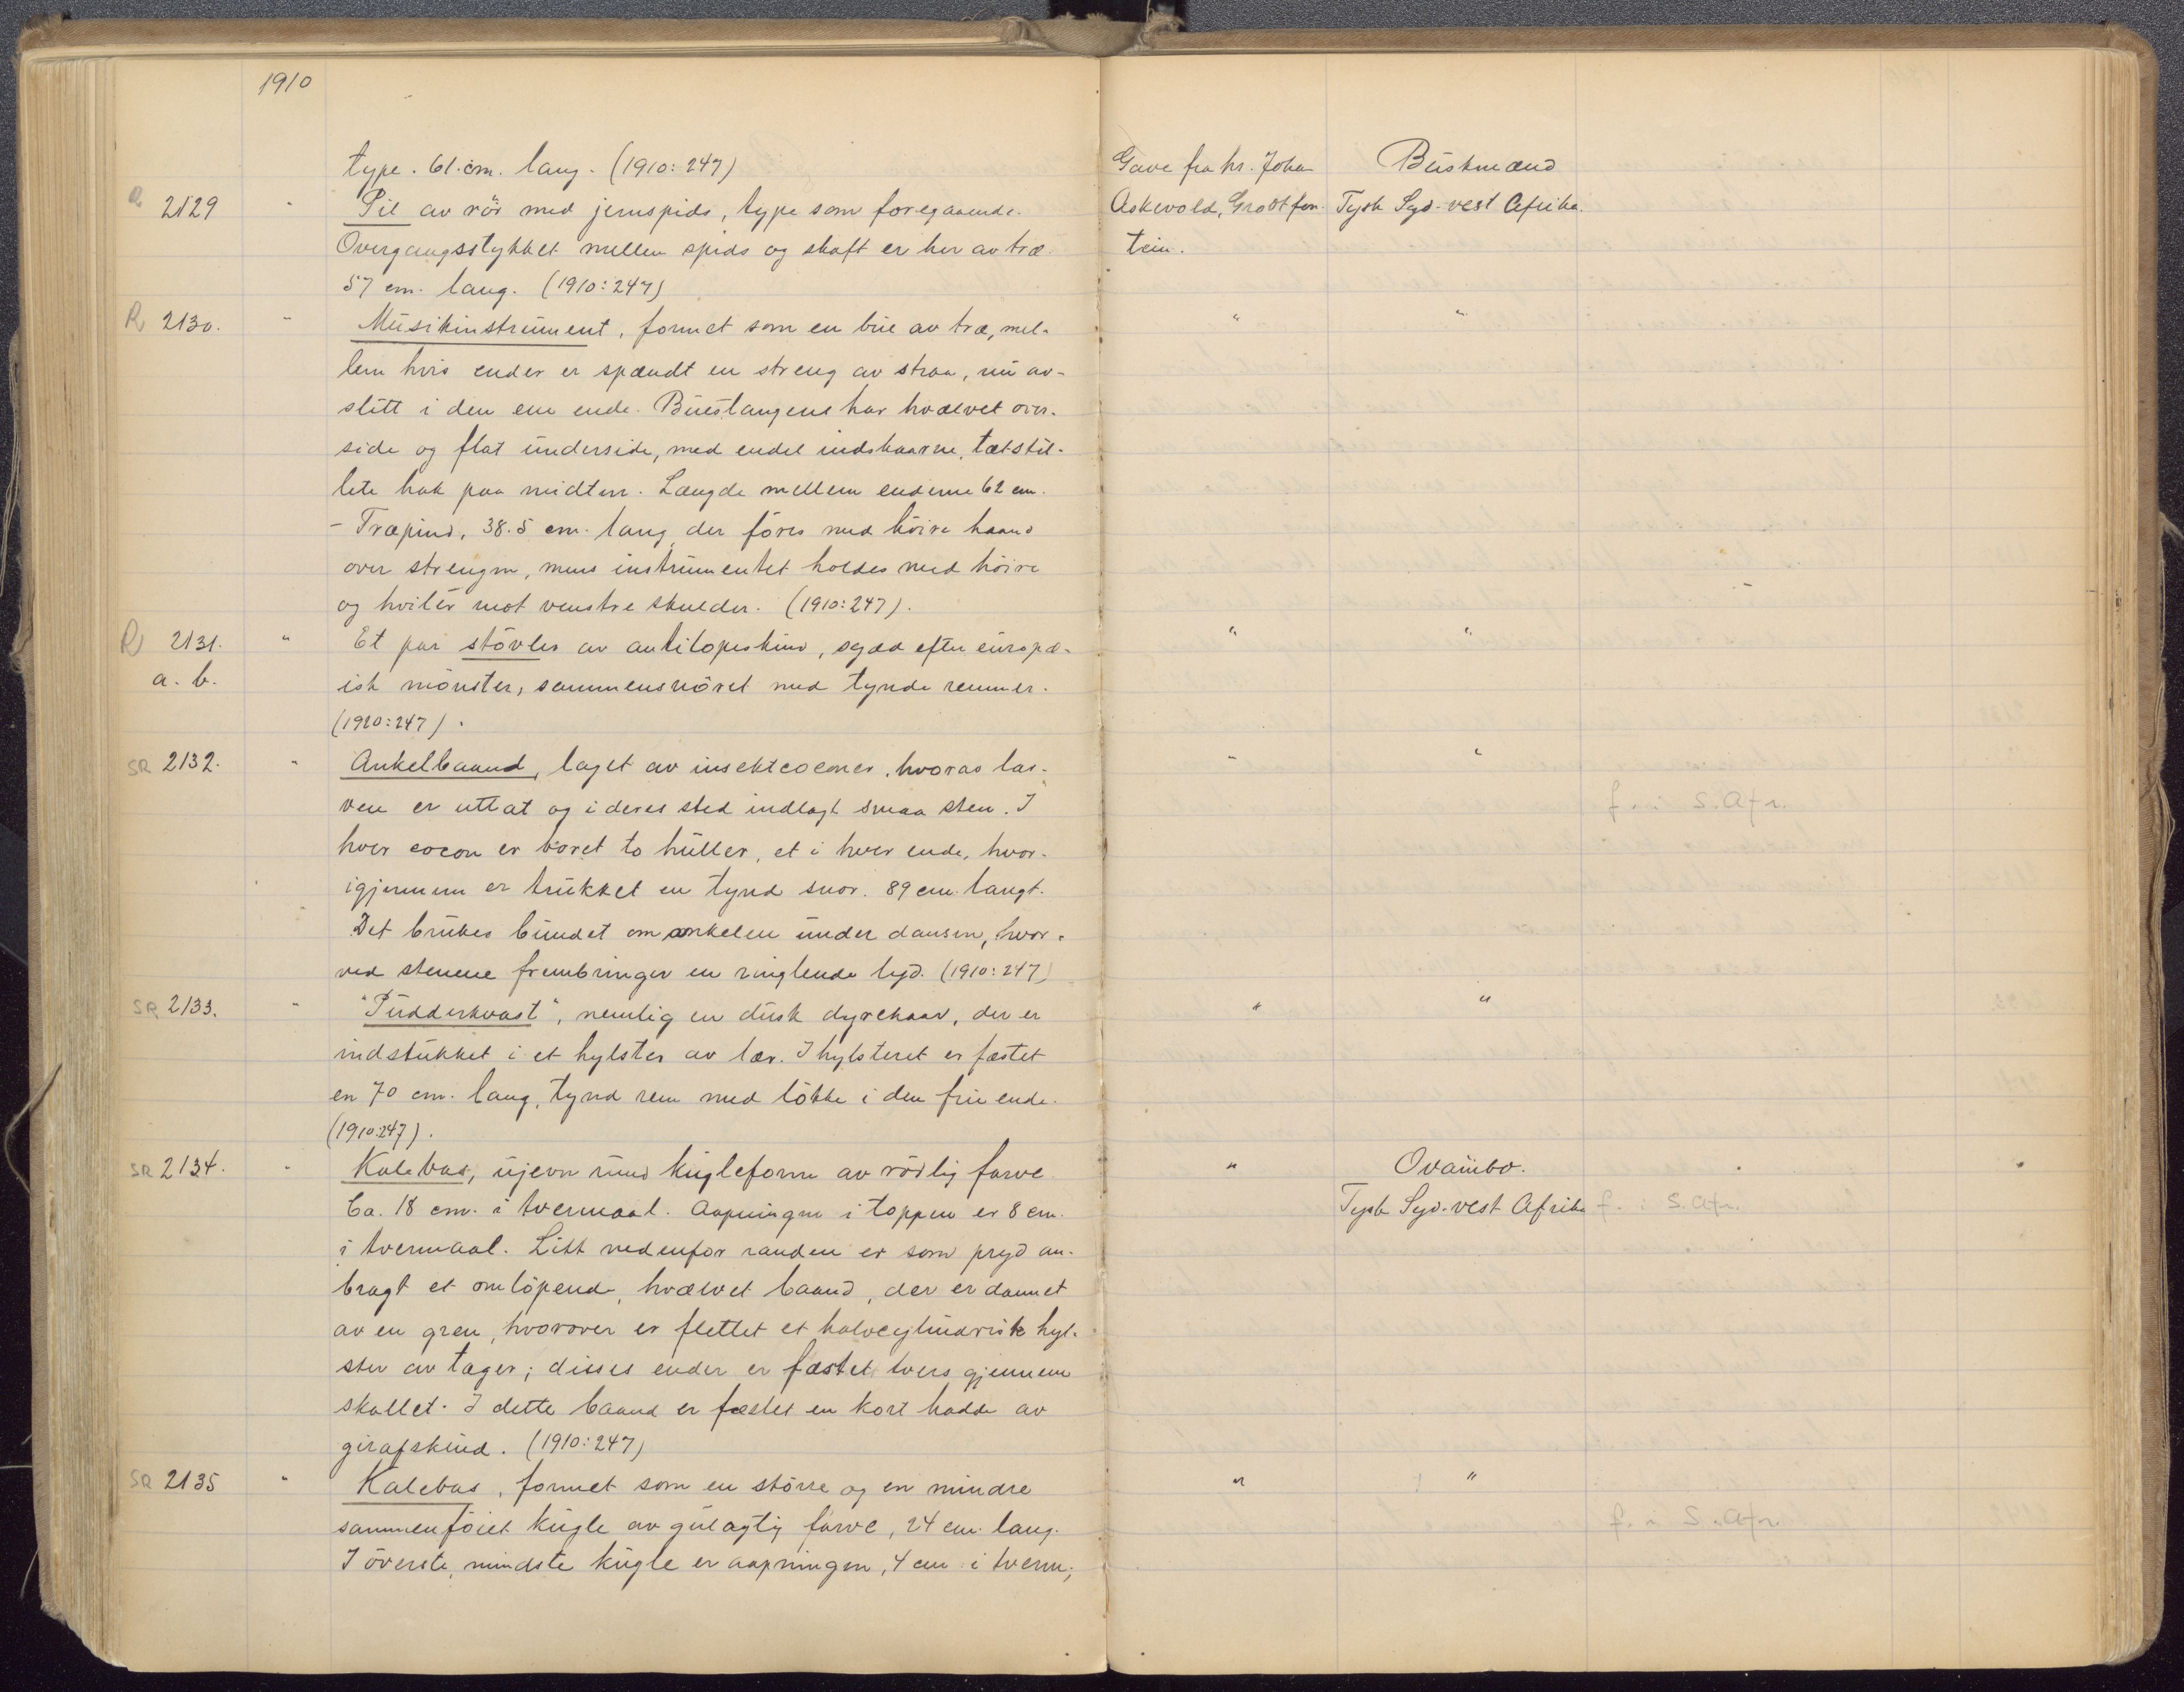 1910
type. 61 cm. lang. (1910:247)
Gave fra hr. Johan
Buskmænd
R 2129 " Pil av rör med jernspids, type som foregaaende.
Askevold, Grootfon-
Tysk Syd-vest Afrika.
Overgangsstykket mellem spids og skaft er her av træ.
tein.
57 cm. lang. (1910:247)
R 2130. " Musikinstrument, formet som en bue av træ, mel-
" "
lem hvis ender er spændt en streng av straa, nu av-
slitt i den ene ende. Buestangene har hvælvet over-
side og flat underside, med endel indskaarne, tætstil-
lete hak paa midten. Længde mellem enderne 62 cm.
- Træpind, 38.5 cm. lang, der föres med höire haand
over strengen, mens instrumentet holdes med höire
og hviler mot venstre skulder. (1910:247).
R 2131. " Et par stövler av antilopeskind, syda efter europæ-
" "
a. b. isk mönster, sammensnöret med tynde remmer.
(1910:247).
SR 2132. " Ankelbaand, laget av insektcocones, hvorav lar-
" "
ven er uttat og i deres sted indlagt smaa sten. I
f. i S. Afr.
hver cocon er boret to huller, et i hver ende, hvor-
igjennem er trukket en tynd snor. 89 cm. langt.
Det brukes bundet om ankelen under dansen, hvor-
ved stenene frembringer en ringlende lyd. (1910:247)
SR 2133. " "Pudderkvast", nemlig en dusk dyrehaar, der er
" "
indstukket i et hylster av lær. I hylsteret er fæstet
en 70 cm. lang, tynd rem med lökke i den frie ende.
(1910:247).
SR 2134. " Kalebas, ujevn rund kugleform av rödlig farve
" Ovambo.
Ca. 18 cm. i tvermaal. Aapningen i toppen er 8 cm.
Tysk Syd-vest Afrika f. i S. Afr.
i tvermaal. Litt nedenfor randen er som pryd an-
bragt et omlöpende, hvælvet baand, der er dannet
av en gren, hvorover er flettet et halvcylindrisk hyl-
ster av tæger; disses ender er fæstet tvers gjennem
skallet. I dette baand er fæstet en kort hadde av
girafskind. (1910:247)
SR 2135 " Kalebas, formet som en större og en mindre
" "
sammenföiet kugle av gulagtig farve, 24 cm. lang.
f. i S. Afr.
I överste, mindste kugle er aapningen, 4 cm i tverm;